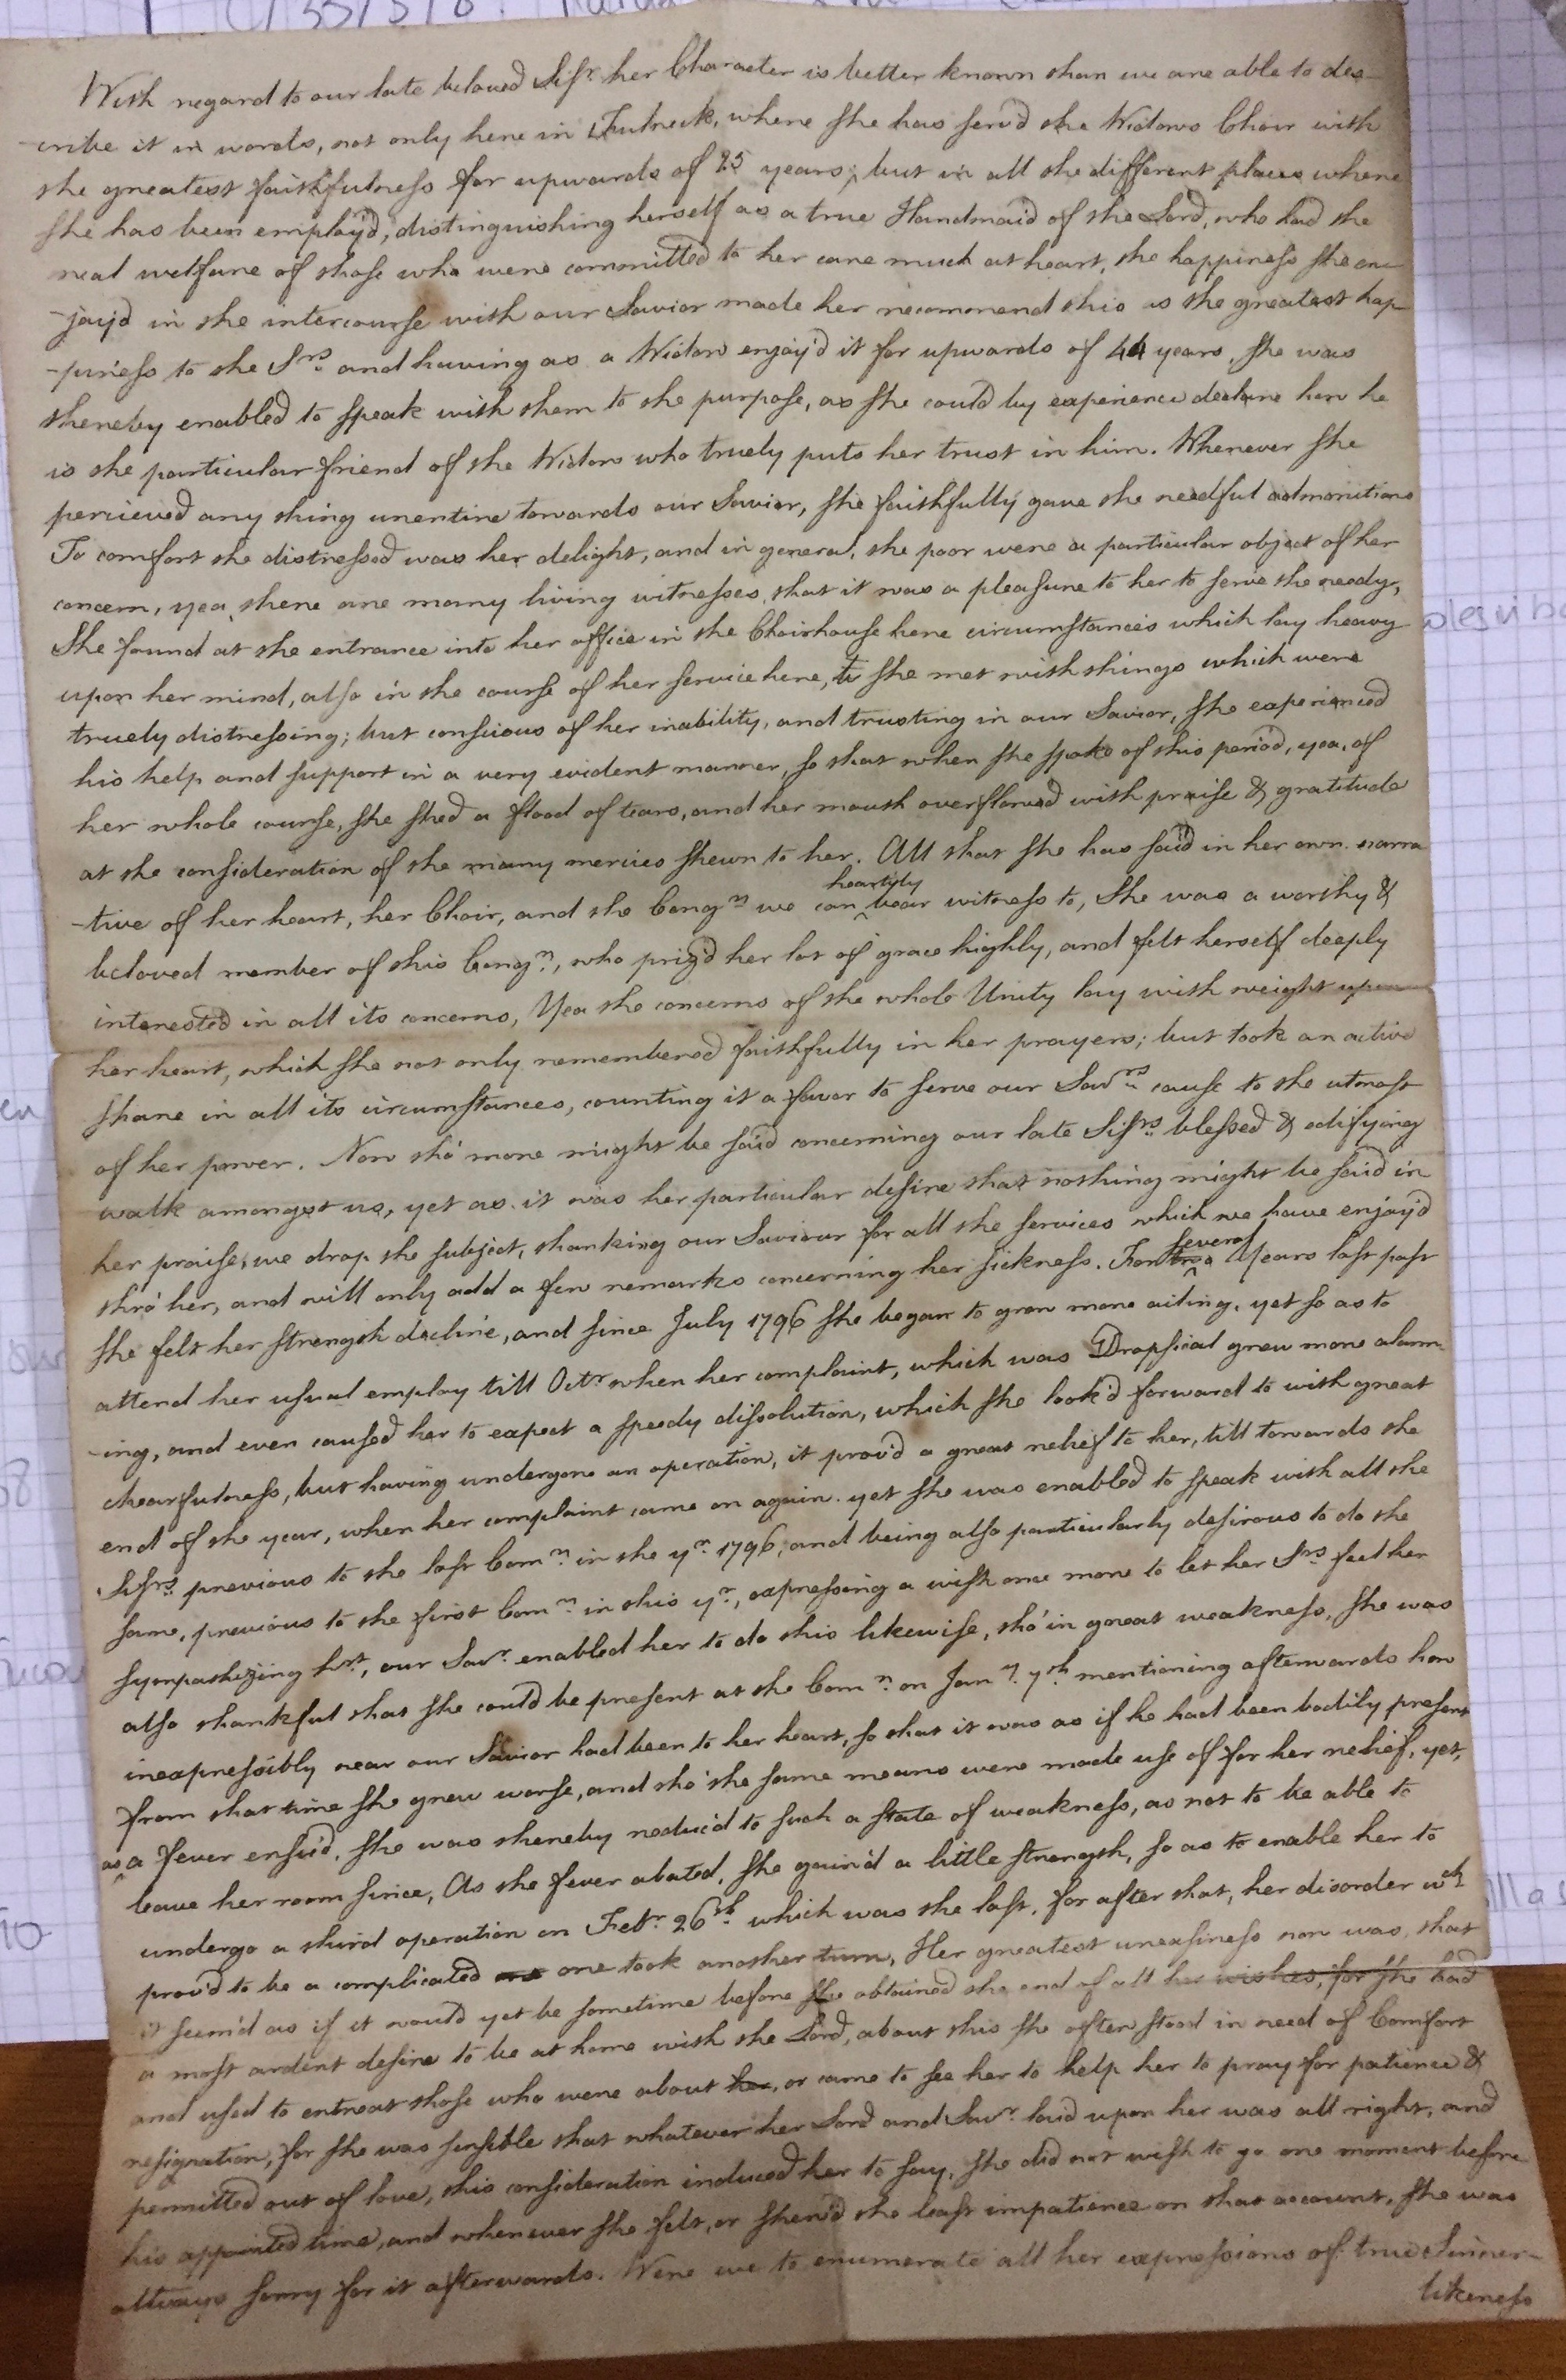 With regard to our late beloved Sisr. her Character is better known than we are able to des-
-cribe it in words, not only here in Fulneck, where she has serv'd the Widows Choir with
the greatest faithfulness for upwards of 25 years, but in all the different places where
she has been employ'd, distinguishing herself as a true Handmaid of the Lord, who had the
real welfare of those who were committed to her care much at heart, the happiness she en-
-joy'd in the intercourse with our Savior made her recommend this as the greatest hap
-piness to the Srs. and having as a Widow enjoy'd it for upwards of 44 years, she was
thereby enabled to speak with them to the purpose, as she could by experience declare how he
is the particular friend of the Widow who truely puts her trust in him. Whenever she
percieved any thing unentire towards our Savior, she faithfully gave the needful admonitions
To comfort the distressed was her delight, and in general, the poor were a particular object of her
concern, yea, there are many living witnesses, that it was a pleasure to her to serve the needy,
She found at the entrance into her office in the Choirhouse here circumstances which lay heavy
upon her mind, also in the course of her service here, she met with things which were
truely distressing; but conscious of her inability, and trusting in our Savior, she experienced
his help and support in a very evident manner, so that when she spoke of this period, yea, of
her whole course, she shed a flood of tears, and her mouth overflowed with praise & gratitude
at the consideration of the many mercies shewn to her. All that she has said in her own narra
-tive of her heart, her Choir, and the Congn. we can heartily bear witness to, She was a worthy &
beloved member of this Congn., who priz'd her lot of grace highly, and felt herself deeply
interested in all its concerns, Yea the concerns of the whole Unity lay with weight upon
her heart, which she not only remembered faithfully in her prayers; but took an active
share in all its circumstances, counting it a favor to serve our Savrs. cause to the utmost
of her power. Now tho' more might be said concerning our late Sisrs. blessed & edifying
walk amongst us, yet as it was her particular desire that nothing might be said in
her praise, we drop the subject, thanking our Saviour for all the services which we have enjoy'd
thro' her, and will only add a few remarks concerning her sickness. For several Years last past
she felt her strength decline, and since July 1796 she began to grow more ailing, yet so as to
attend her usual employ till Octr. when her complaint, which was Dropsical grew more alarm-
-ing, and even caused her to expect a speedy dissolution, which she look'd forward to with great
chearfulness, but having undergone an operation, it prov'd a great relief to her, till towards the
end of the year, when her complaint came on again. yet she was enabled to speak with all the
Sisrs. previous to the last Comn. in the yr. 1796, and being also particularly desirous to do the
same, previous to the first Comn. in this yr., expressing a wish once more to let her Srs. feel her
sympathezing hrt, our Savr. enabled her to do this likewise, tho' in great weakness, she was
also thankful that she could be present at the Comn. on Jany. 7th. mentioning afterwards how
inexpressibly near our Savior had been to her heart, so that it was as if he had been bodily present
from that time she grew worse, and tho' the same means were made use of for her relief, yet,
as a fever ensu'd, she was thereby reduc'd to such a state of weakness, as not to be able to
leave her room since, As the fever abated, she gain'd a little strength, so as to enable her to
undergo a third operation on Febr. 26th. which was the last, for after that, her disorder wch.
prov'd to be a complicated one took another turn, Her greatest uneasiness now was, that
it seem'd as if it would yet be sometime before she obtained the end of all her wishes, for she had
a most ardent desire to be at home with the Lord, about this she often stood in need of Comfort
and used to entreat those who were about her, or came to see her to help her to pray for patience &
resignation, for she was sensible that whatever her Lord and Savr. laid upon her was all right, and
permitted out of love, this consideration induced her to say, she did not wish to go one moment before
his appointed time, and whenever she felt, or shew'd the least impatience on that account, she was
always sorry for it afterwards. Were we to enumerate all her expressions of true Sinner-
likeness